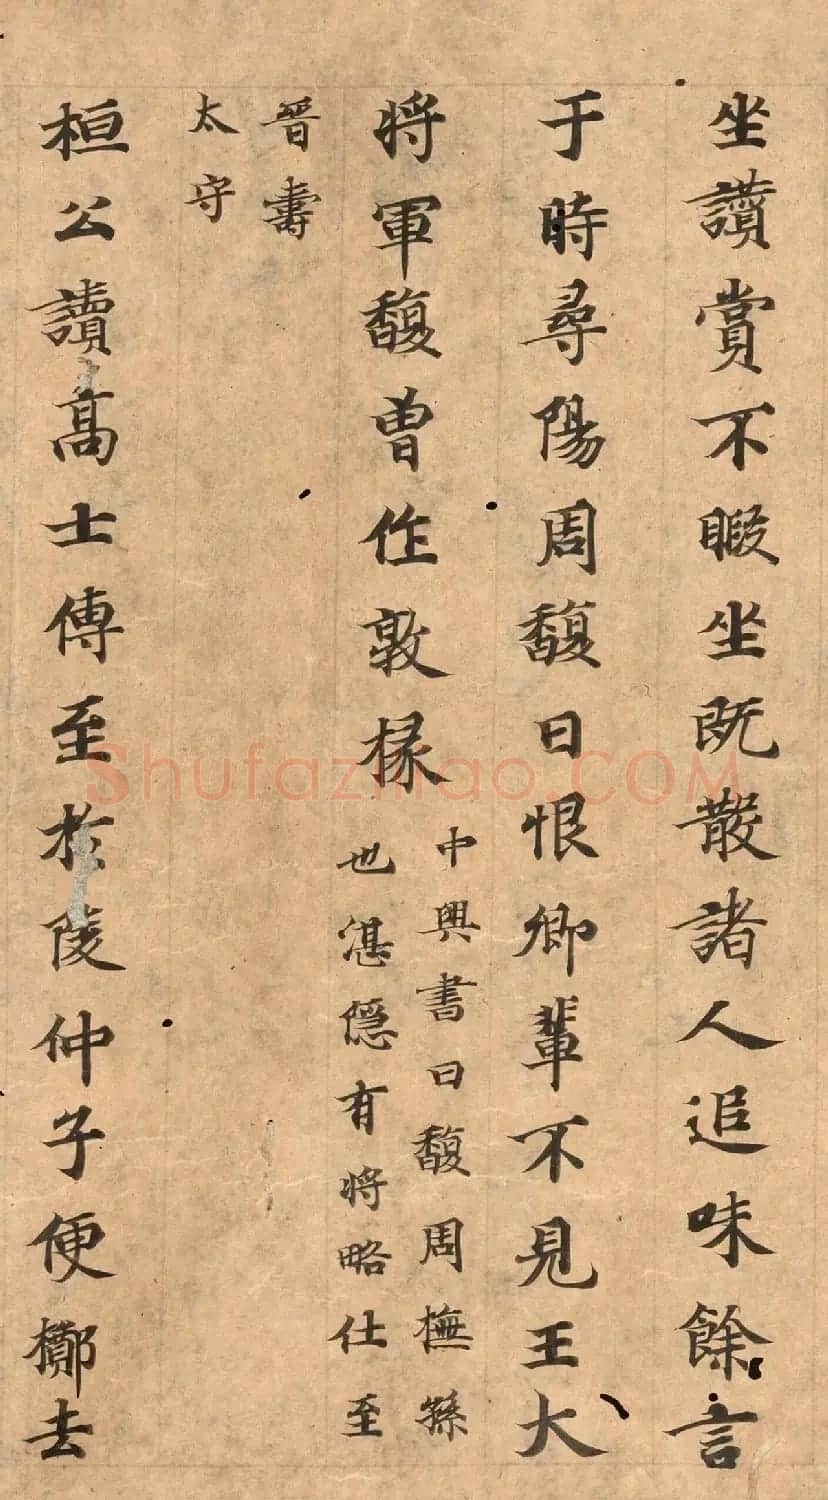 坐讚賞不暇坐既散諸人追味餘言
于時尋陽周馥曰恨卿輩不見王大
將軍馥曾作敦掾
中興書曰馥周撫孫
也湛隱有將略仕至
晉壽
太守
桓公讀高士傳至於陵仲子便擲去
Shufazidiao.COM